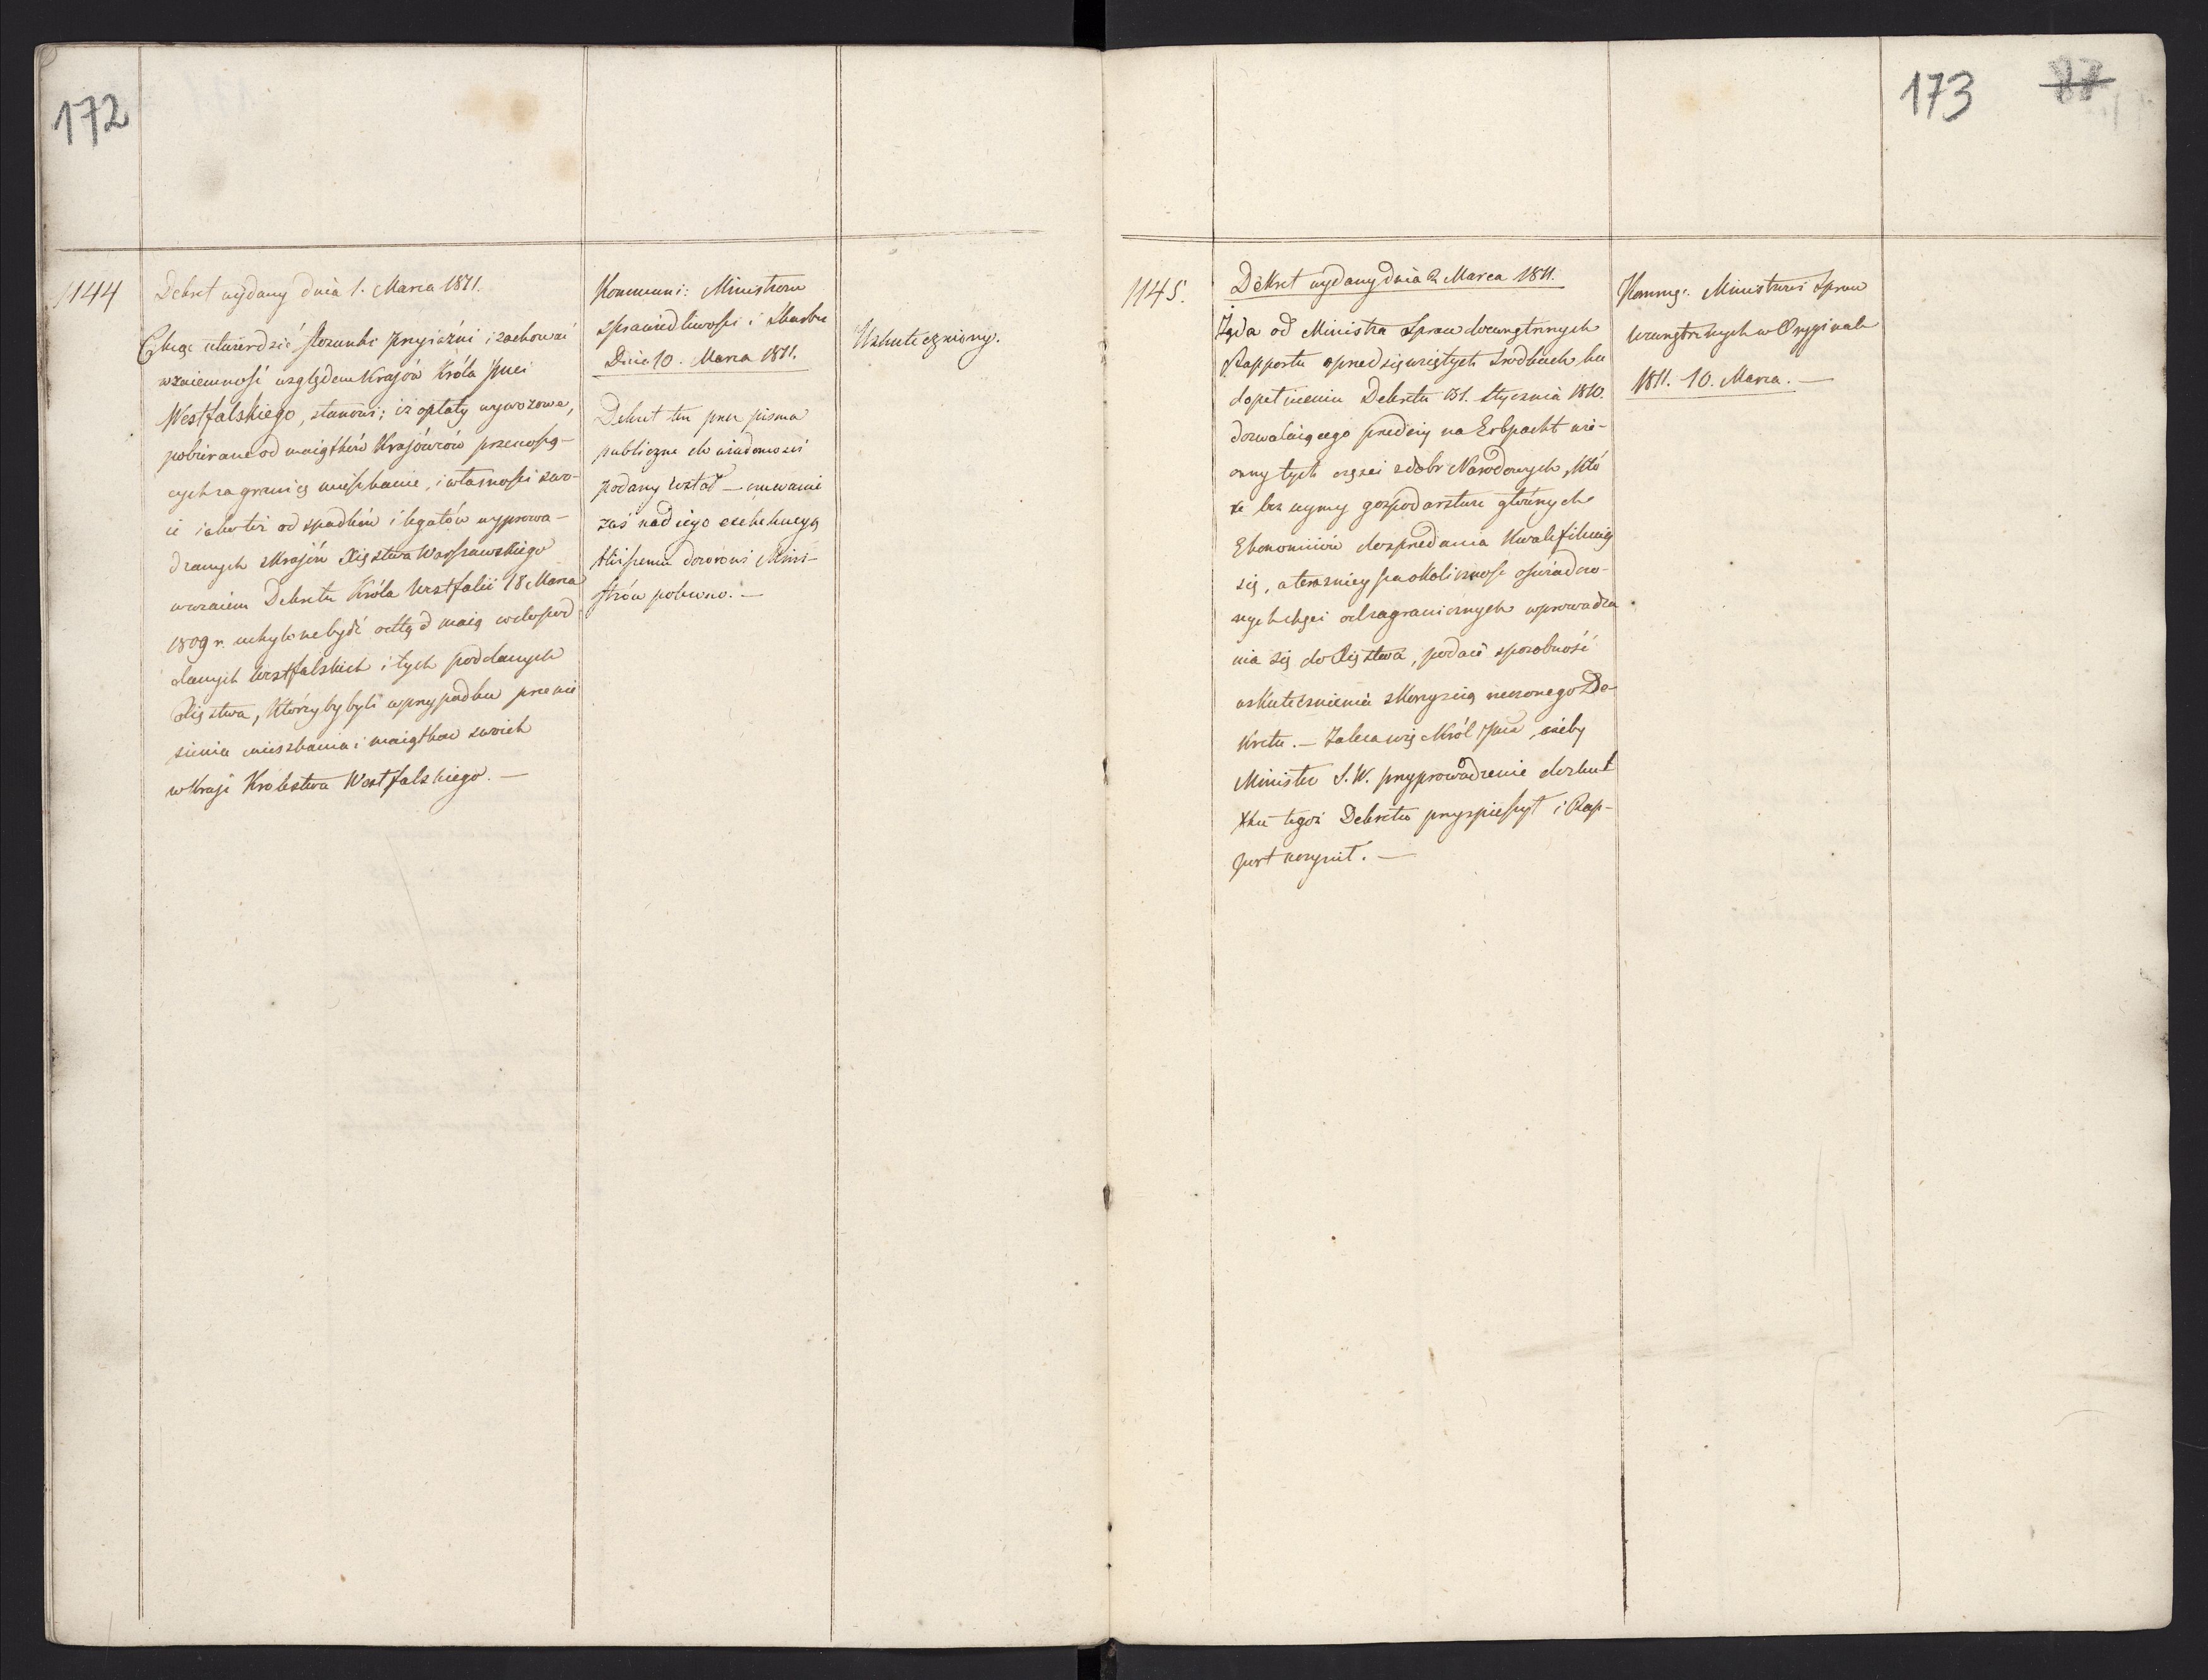 172
1144
Dekret wydany dnia 1. Marca 1811.
Chcąc utwierdzić stosunki przyiaźni i zachować
wzaiemność względem Kraiów Króla Jmci
Westfalskiego, stanowi; iż opłaty wywozowe,
pobierane od maiątków Kraiowców przenoszą-
cych za granicę mieszkanie, i własności swo-
ie iako też od spadków i legatów wyprowa-
dzanych z Kraiów Xięstwa Warszawskiego
wzaiem Dekretu Króla Westfalii 18 Marca
1809 r. uchylone bydź odtąd maią co do pod-
danych Westfalskich i tych poddanych
Xięstwa, którzy by byli w przypadku przenie
sienia mieszkania i maiątkow swoich
w Kraje Krolestwa Westfalskiego. —
Kommuni: Ministrom
Sprawiedliwości i Skarbu
Dnia 10. Marca 1811.
Dekret ten przez pisma
publiczne do wiadomości
podany został — czuwanie
zaś nad iego exekucyą
ścisłemu dozorowi Mini-
strów polecono. —
Uskuteczniony.
173 88
1145.
Dekret wydany dnia 2 Marca 1811.
Żąda od Ministra Spraw Wewnętrznych
Rapportu o przedsięwziętych środkach ku
dopełnieniu Dekretu 31. Stycznia 1810.
dozwalaiącego przedaży na Erbpacht wie-
czny tych części z dobr Narodowych, któ
re bez uymy gospodarstwu głównych
Ekonomiiów do sprzedania kwalifikuią
się, a teraznieysza okoliczność oświadczo-
nych chęci od zagranicznych wprowadza
nia się do Xięstwa, podaie sposobność
uskutecznienia z korzyścią rzeczonego De-
kretu. — Zaleca więc Król Jmć, ażeby
Minister S. W. przyprowadzenie do skut
ku tegoż Dekretu przyspieszył i Rap-
port uczynił. —
Kommu: Ministrowi Spraw
Wewnętrznych w Oryginale
1811. 10. Marca. —